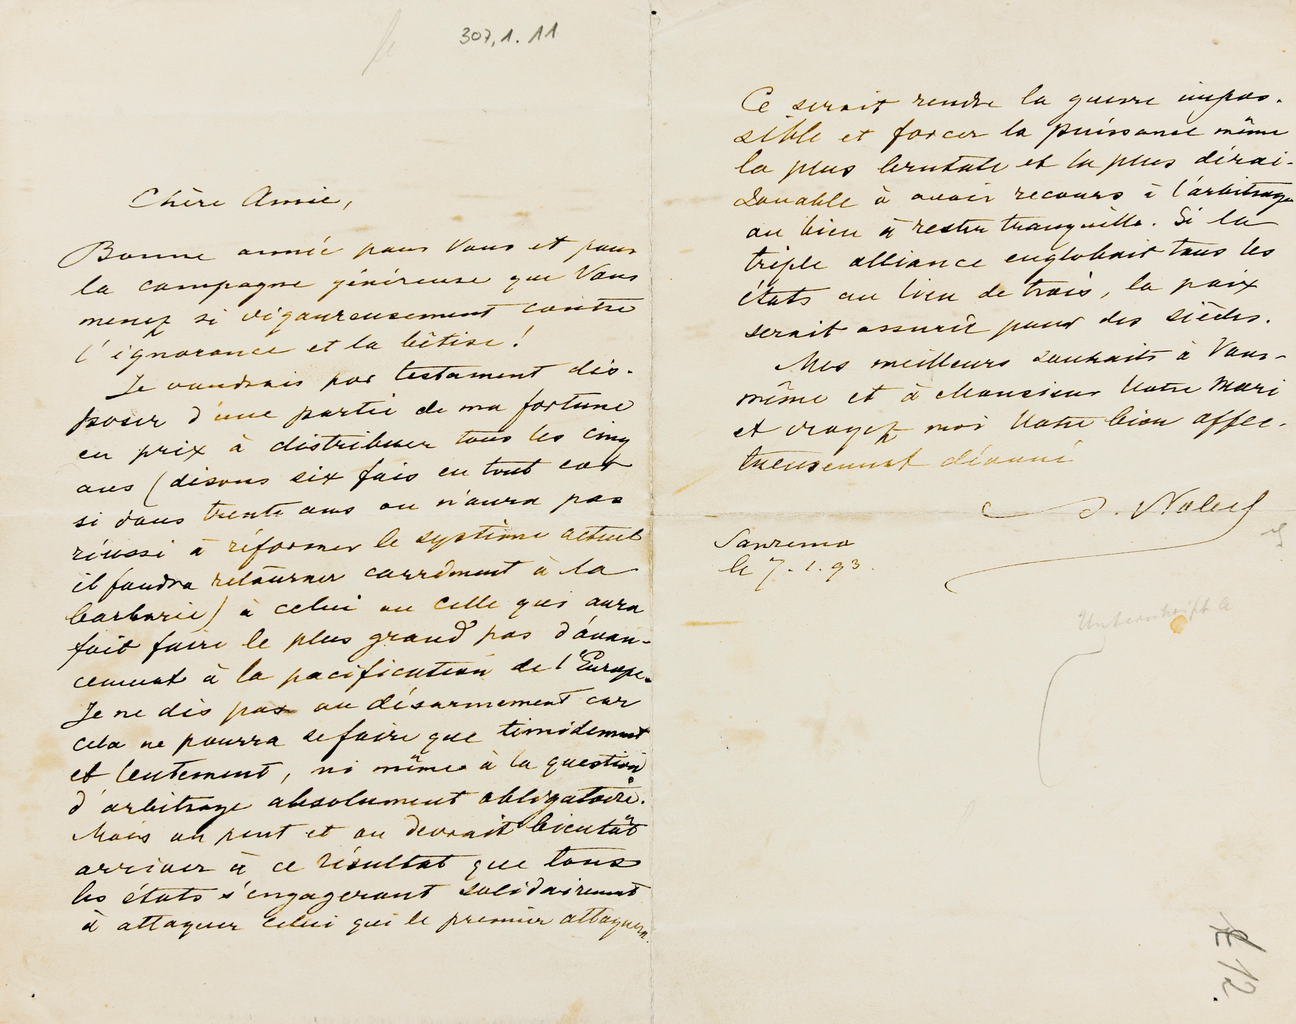 307,1.11
Chère Amie,
Bonne année pour Vous et pour
la campagne généreuse que Vous
menez si vigoureusement contre
l'ignorance et la bêtise!
Je voudrais par testament dis-
poser d'une partie de ma fortune
en prix à distribuer tous les cinq
ans (disons six fois en tout car
si dans trente ans on n'aura pas
réussi à réformer le système actuel
il faudra retourner carrément à la
barbarie) à celui ou celle qui aura
fait faire le plus grand pas d'avan-
cement à la pacification de l'Europe.
Je ne dis pas au désarmement car
cela ne pourra se faire que timidement
et lentement, ni même à la question
d'arbitrage absolument obligatoire.
Mais on peut et on devrait bientôt
arriver à ce résultat que tous
les états s'engageront solidairement
à attaquer celui qui le premier attaquera.
Ce serait rendre la guerre impos-
sible et forcer la puissance même
la plus brutale et la plus dérai-
sonable à avoir recours à l'arbitrage
ou bien à rester tranquille. Si la
triple alliance englobait tous les
états au lieu de trois, la paix
serait assurée pour des siècles.
Mes meilleurs souhaits à Vous-
même et à Monsieur Votre Mari
et croyez moi Votre bien affec-
tueusement dévoué
A. Nobel
Sanremo
le 7.1.93.
Unterschrift
12.